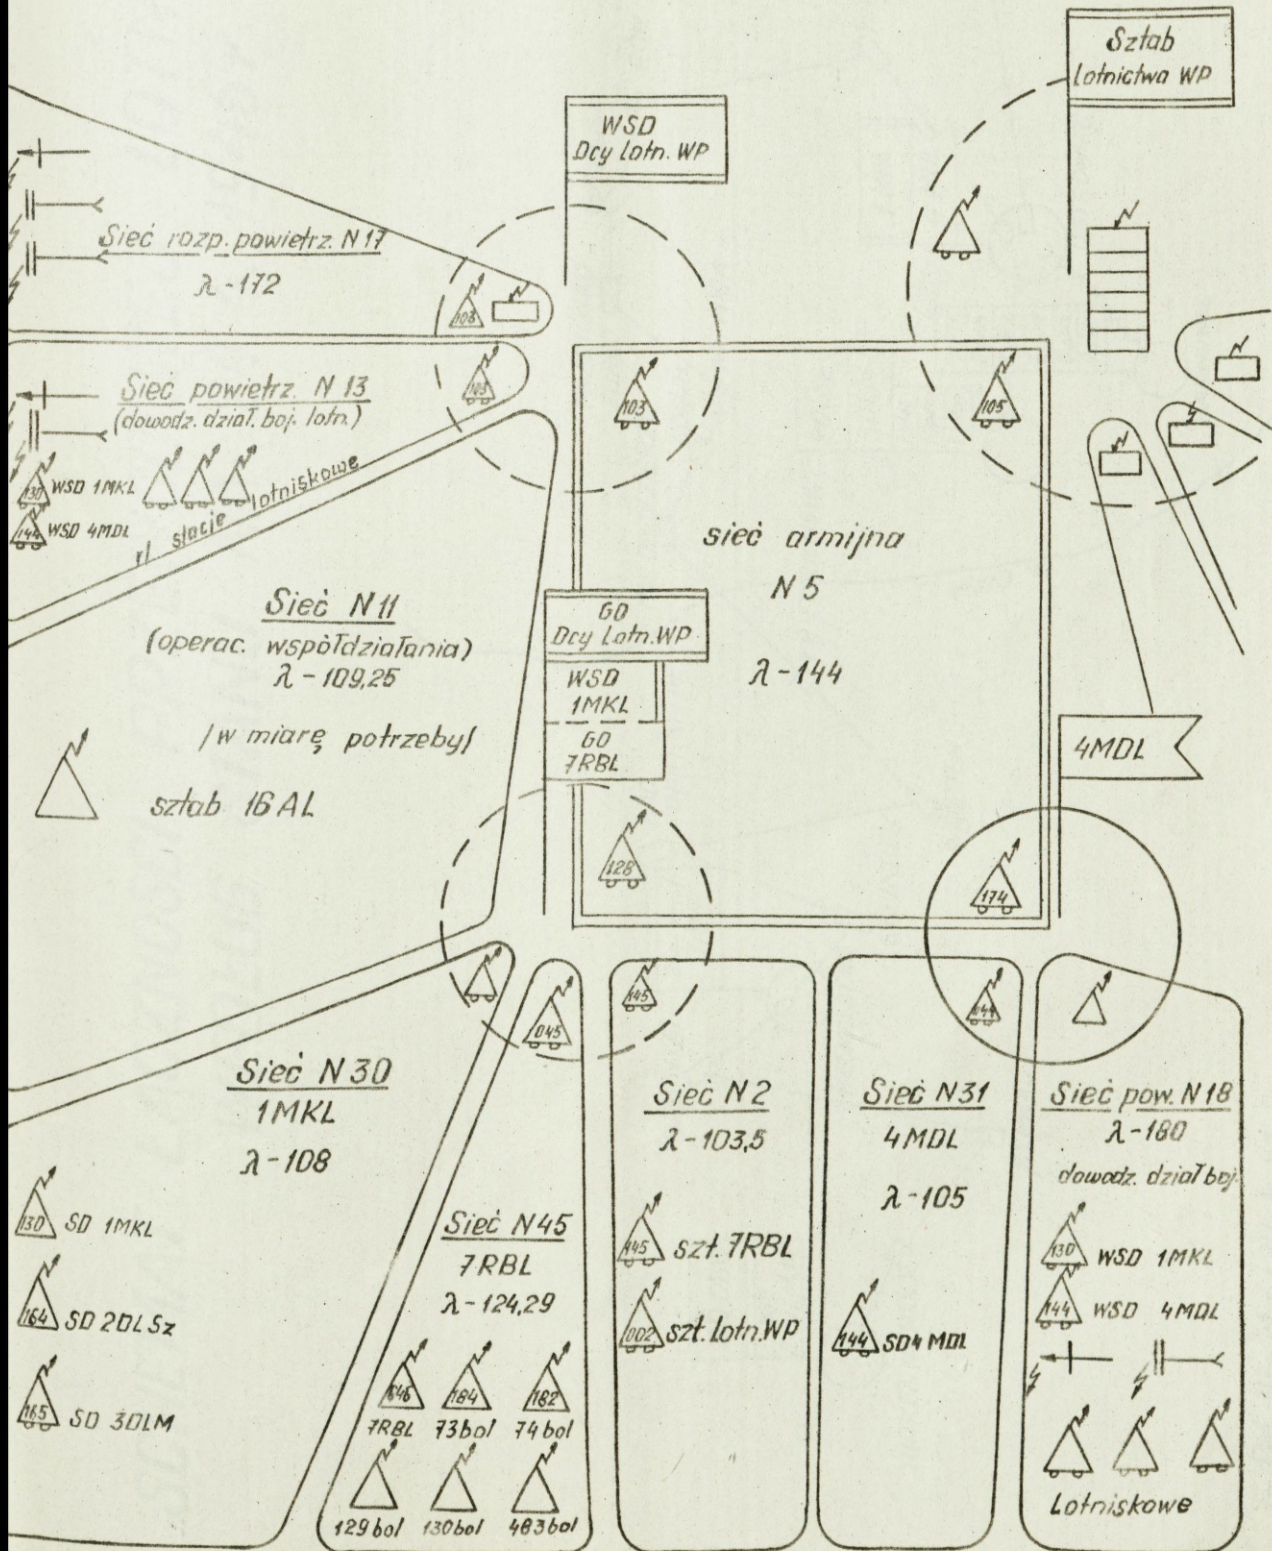 Sztab
Lotnictwa WP
WSD
Dcy Lotn. WP
Sieć rozp. powietrz. N 17
λ-172
103
Sieć powietrz. N 13
(dowodz. dział. boj. lotn.)
103
103
105
130 WSD 1MKL
144 WSD 4MDL
rl stacje lotniskowe
sieć armijna
N 5
λ-144
Sieć N11
(operac. współdziałania)
λ-109,25
/w miarę potrzeby/
sztab 16 AL
GO
Dcy Lotn. WP
WSD
1MKL
GO
7RBL
4MDL
128
174
145
045
144
Sieć N 30
1MKL
λ-108
130 SD 1MKL
164 SD 2DLSz
165 SD 3DLM
Sieć N45
7RBL
λ-124,29
646 184 182
7RBL 73bol 74bol
129bol 130bol 483bol
Sieć N 2
λ-103,5
145 szt. 7RBL
002 szt. lotn. WP
Sieć N31
4 MDL
λ-105
144 SD4 MDL
Sieć pow. N 18
λ-160
dowodz. dział boj.
130 WSD 1MKL
144 WSD 4MDL
Lotniskowe